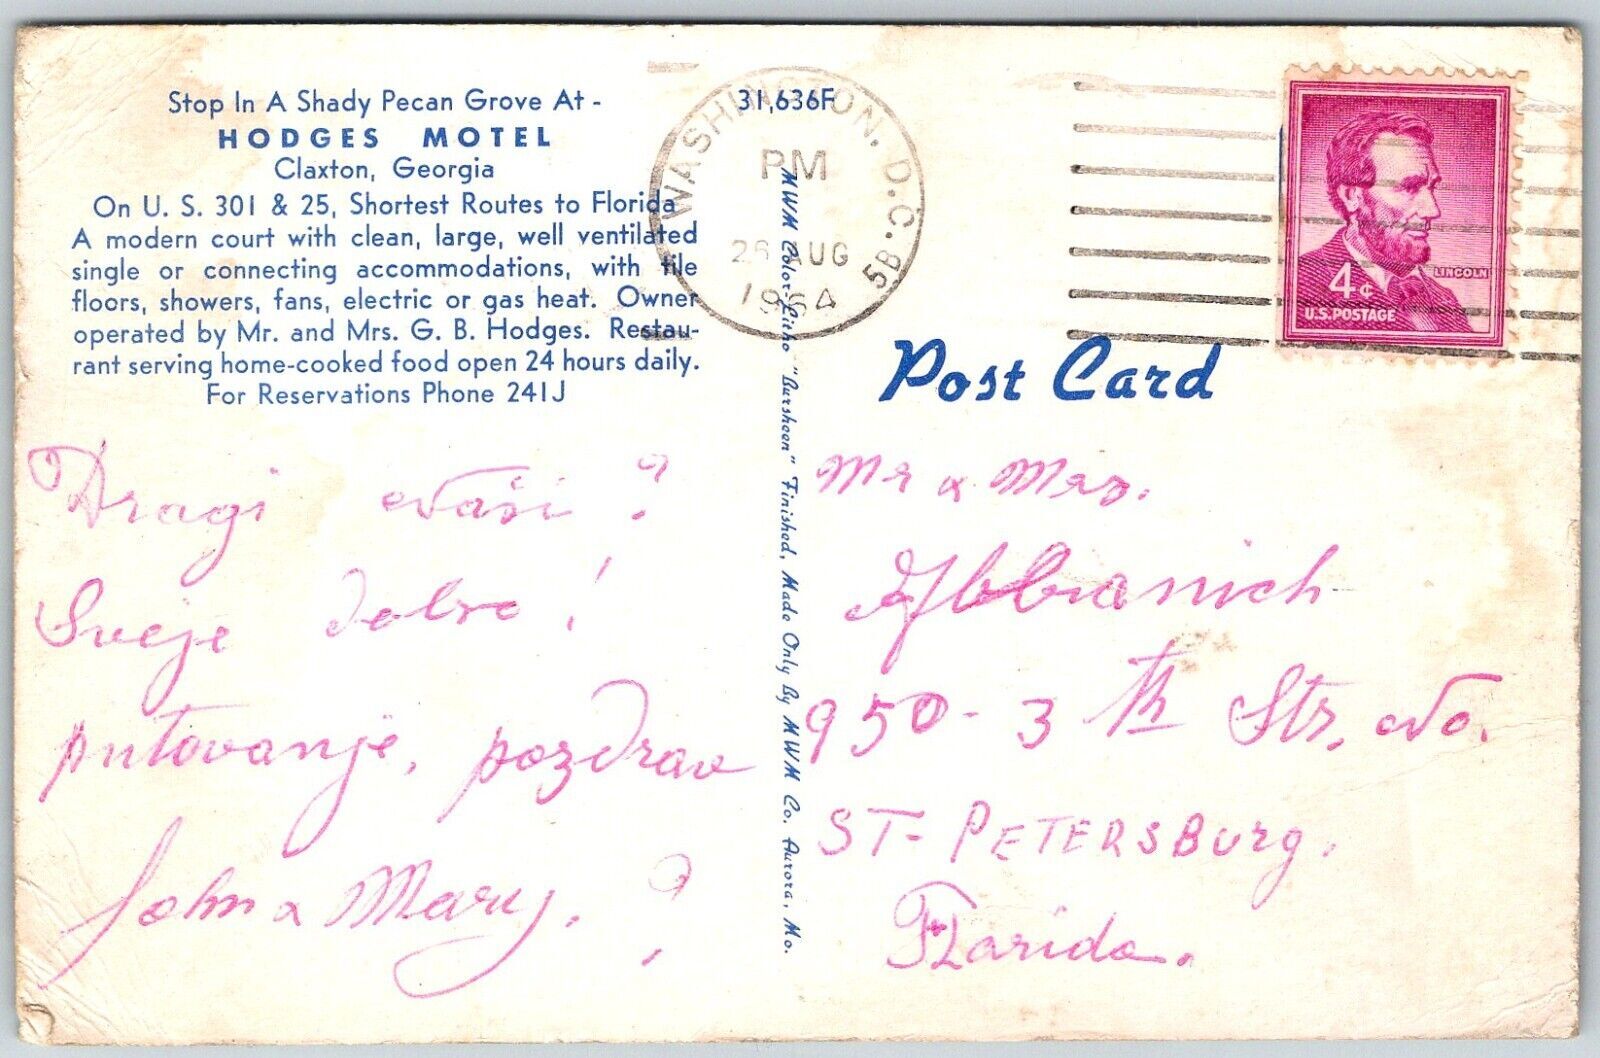 Stop In A Shady Pecan Grove At -
HODGES MOTEL
Claxton, Georgia
On U. S. 301 & 25, Shortest Routes to Florida
A modern court with clean, large, well ventilated
single or connecting accommodations, with tile
floors, showers, fans, electric or gas heat. Owner
operated by Mr. and Mrs. G. B. Hodges. Restau-
rant serving home-cooked food open 24 hours daily.
For Reservations Phone 241J
31,636F
WASHINGTON, D.C. 5B
PM
26 AUG
1964
LINCOLN
4¢
U.S. POSTAGE
Post Card
MWM Color-Litho "Bursheen" Finished, Made Only By MWM Co. Aurora, Mo.
Dragi Naši?
Sveje dobro!
putovanje, pozdrav
John & Mary. ?
Mr & Mrs.
950-3th Str. No.
ST-PETERSBurg.
Florida.